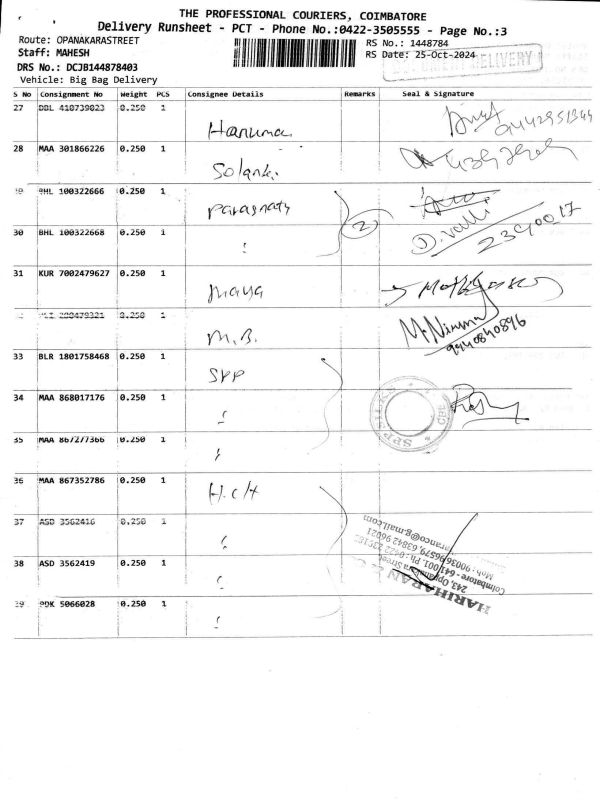 THE PROFESSIONAL COURIERS, COIMBATORE
Delivery Runsheet - PCT - Phone No.:0422-3505555 - Page No.:3
Route: OPANAKARASTREET
RS No.: 1448784
Staff: MAHESH
RS Date: 25-Oct-2024
DELIVERY
DRS No.: DCJB144878403
Vehicle: Big Bag Delivery
S No Consignment No Weight PCS Consignee Details Remarks Seal & Signature
27 DDL 410739023 0.250 1
Hanuma
9442951344
28 MAA 301866226 0.250 1
Solanki
29 BHL 100322666 0.250 1
Parasnath
2
D. Valli
30 BHL 100322668 0.250 1
2390017
31 KUR 7002479627 0.250 1
Maya
0.250 1
M.B.
M. Nirmal
9940840896
33 BLR 1801758468 0.250 1
SPP
34 MAA 868017176 0.250 1
SPP SILKS CBE
35 MAA 867277366 0.250 1
36 MAA 867352786 0.250 1
H.C.H
37 ASD 3562416 0.250 1
38 ASD 3562419 0.250 1
HARIHARAN & CO
243, Oppanakara Street
Coimbatore - 641 001. Ph : 0422
Moh : 90036 96579, 63842 96021
arranco@g-mail.com
39 PDK 5066028 0.250 1